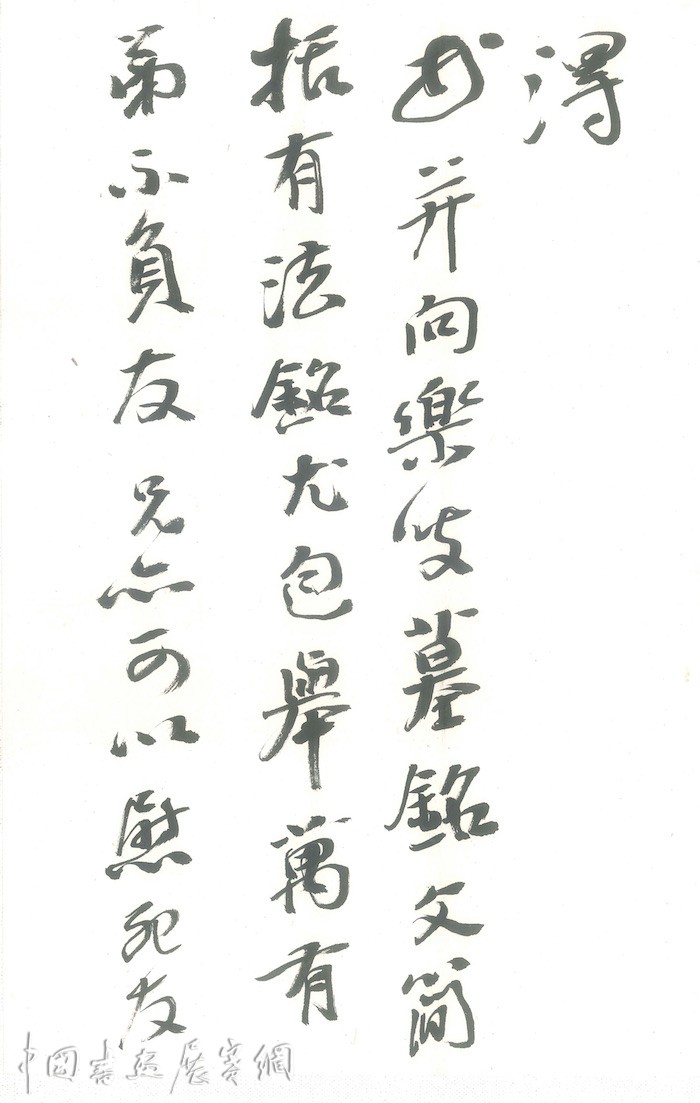 得
書并向樂谷墓銘文簡
括有法銘尤包舉萬有
弟不負友兄亦可以慰死友
中國書畫展賽網